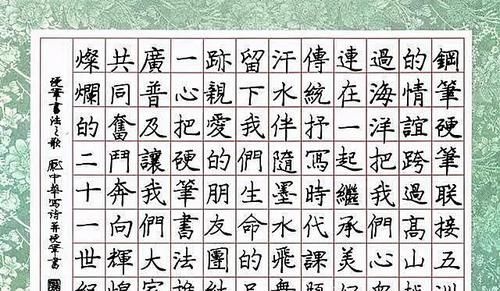 鋼筆硬筆聯接五
的情誼跨過高山
過海洋把我們心
連在一起繼承美
傳統抒寫時代課
汗水伴隨墨水飛
留下我們生命的
跡親愛的朋友團
一心把硬筆書法
廣普及讓我們大
共同奮鬥奔向輝
燦爛的二十一世
硬筆書法之歌 龐中華寫詩并硬筆書